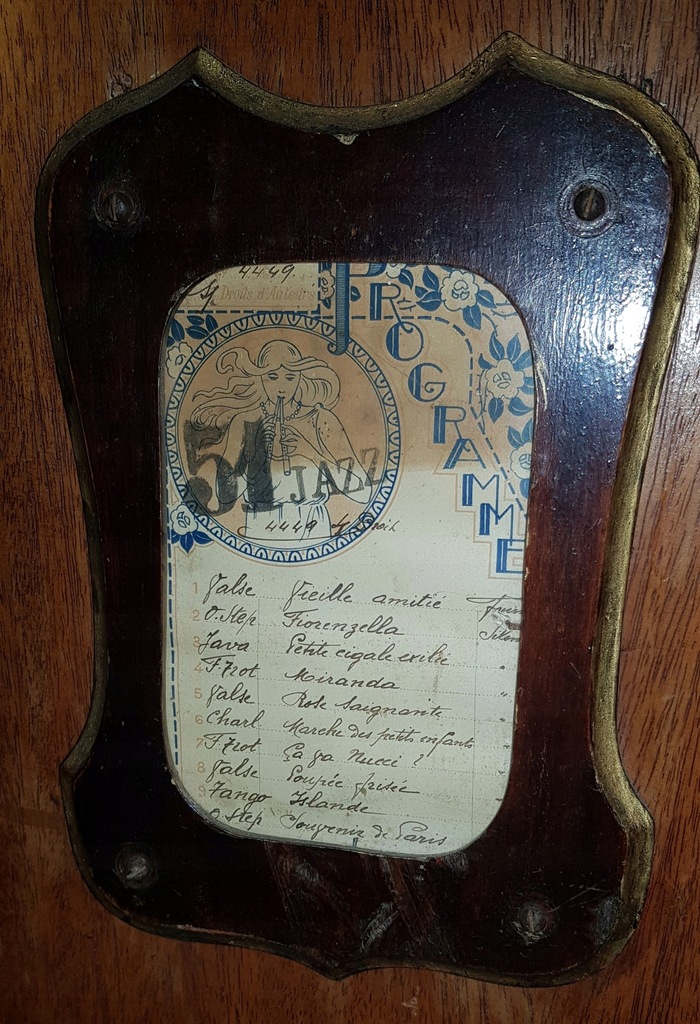 4449
Droits d'Auteurs
PROGRAMME
51 JAZZ
4449
1 Valse Vieille amitié
2 O.Step Fiorenzella
3 Java Petite cigale exilée
4 F.Trot Miranda
5 Valse Rose saignante
6 Charl Marche des petits enfants
7 F.Trot Ça ya Nucci ?
8 Valse Poupée frisée
9 Tango Islande
O Step Souvenir de Paris